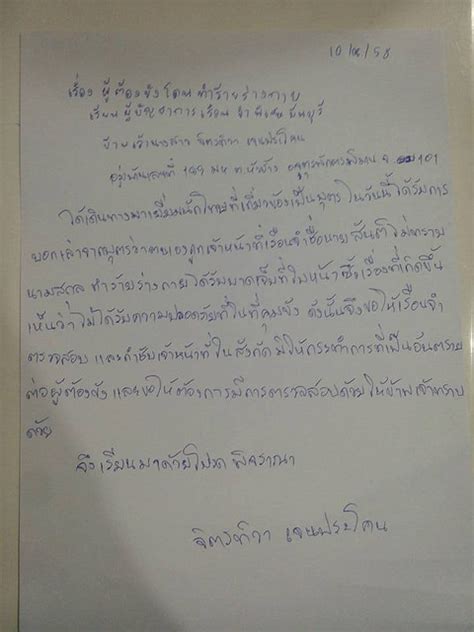 10/8/58
เรื่อง ผู้ต้องขังโดนทำร้ายร่างกาย
เรียน ผู้บัญชาการเรือนจำพิเศษมีนบุรี
ข้าพเจ้านางสาว จิตรทิวา เจนประโคน
อยู่บ้านเลขที่ 109 ม.4 ต.หัวช้าง อ.จตุรพักตรพิมาน จ. 101
ได้เดินทางมาเยี่ยมนักโทษที่เกี่ยวข้องเป็นบุตร ในวันนี้ได้รับการ
บอกเล่าจากบุตรว่าตนเองถูกเจ้าหน้าที่เรือนจำชื่อนายสันต์ ไม่ทราบ
นามสกุล ทำร้ายร่างกายได้รับบาดเจ็บที่ใบหน้า ซึ่งเรื่องที่เกิดขึ้น
เห็นว่าไม่ได้รับความปลอดภัยที่ในที่คุมขัง ดังนั้นจึงขอให้เรือนจำ
ตรวจสอบ และกำชับเจ้าหน้าที่ในสังกัด มิให้กระทำการที่เป็นอันตราย
ต่อผู้ต้องขัง และขอให้ต้องการมีการตรวจสอบด้วยให้ข้าพเจ้าทราบ
ด้วย
จึงเรียนมาด้วยโปรดพิจารณา
จิตรทิวา เจนประโคน